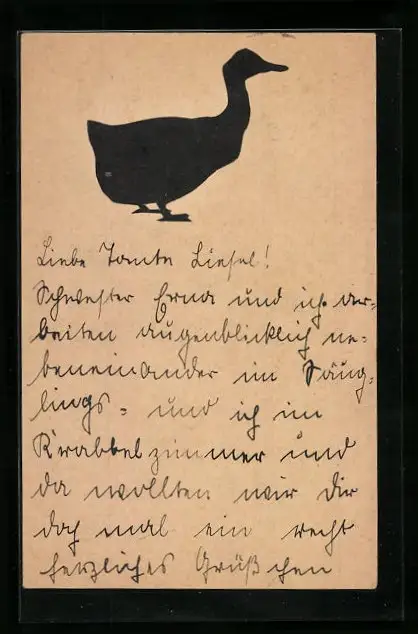 Liebe Tante Liesel!
Schwester Erna und ich ar-
beiten augenblicklich ne-
beneinander im Säug-
lings- und ich im
Krabbelzimmer und
da wollten wir Dir
doch mal ein recht
herzliches Grüßchen